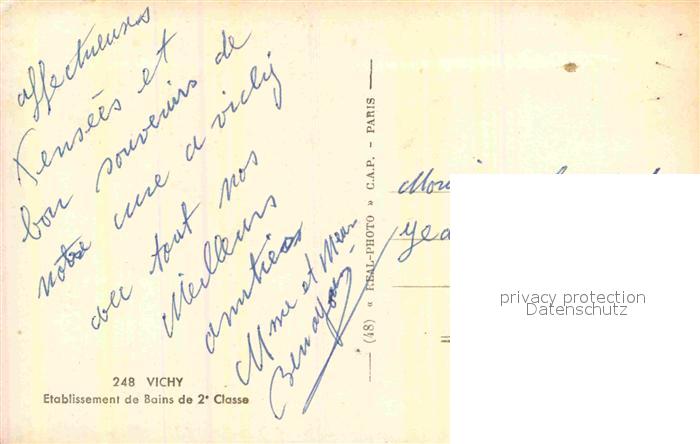 affectueuses
Pensées et
bon souvenirs de
notre cure a vichy
avec tout nos
Meilleurs
amitiés
Mme et Meur
248 VICHY
Etablissement de Bains de 2e Classe
(48) « REAL-PHOTO » C.A.P. - PARIS
privacy protection
Datenschutz